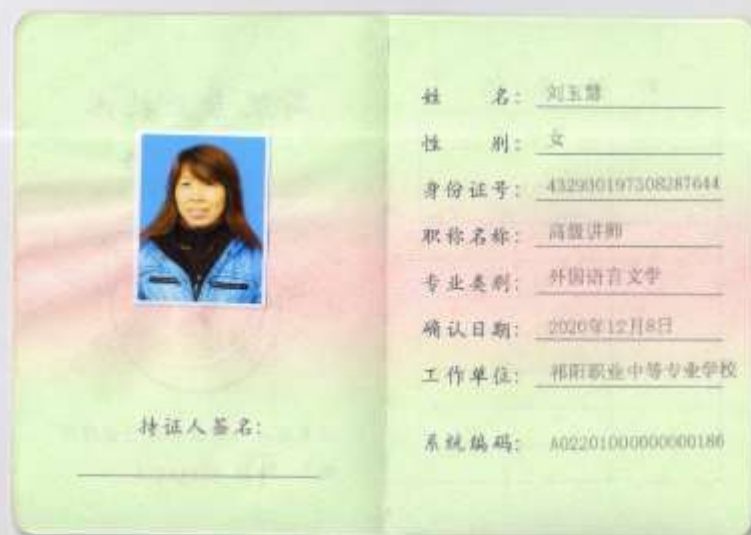 持证人签名:
姓 名: 刘玉慧
性 别: 女
身份证号: 432930197308287644
职称名称: 高级讲师
专业类别: 外国语言文学
确认日期: 2020年12月8日
工作单位: 祁阳职业中等专业学校
系统编码: A02201000000000186